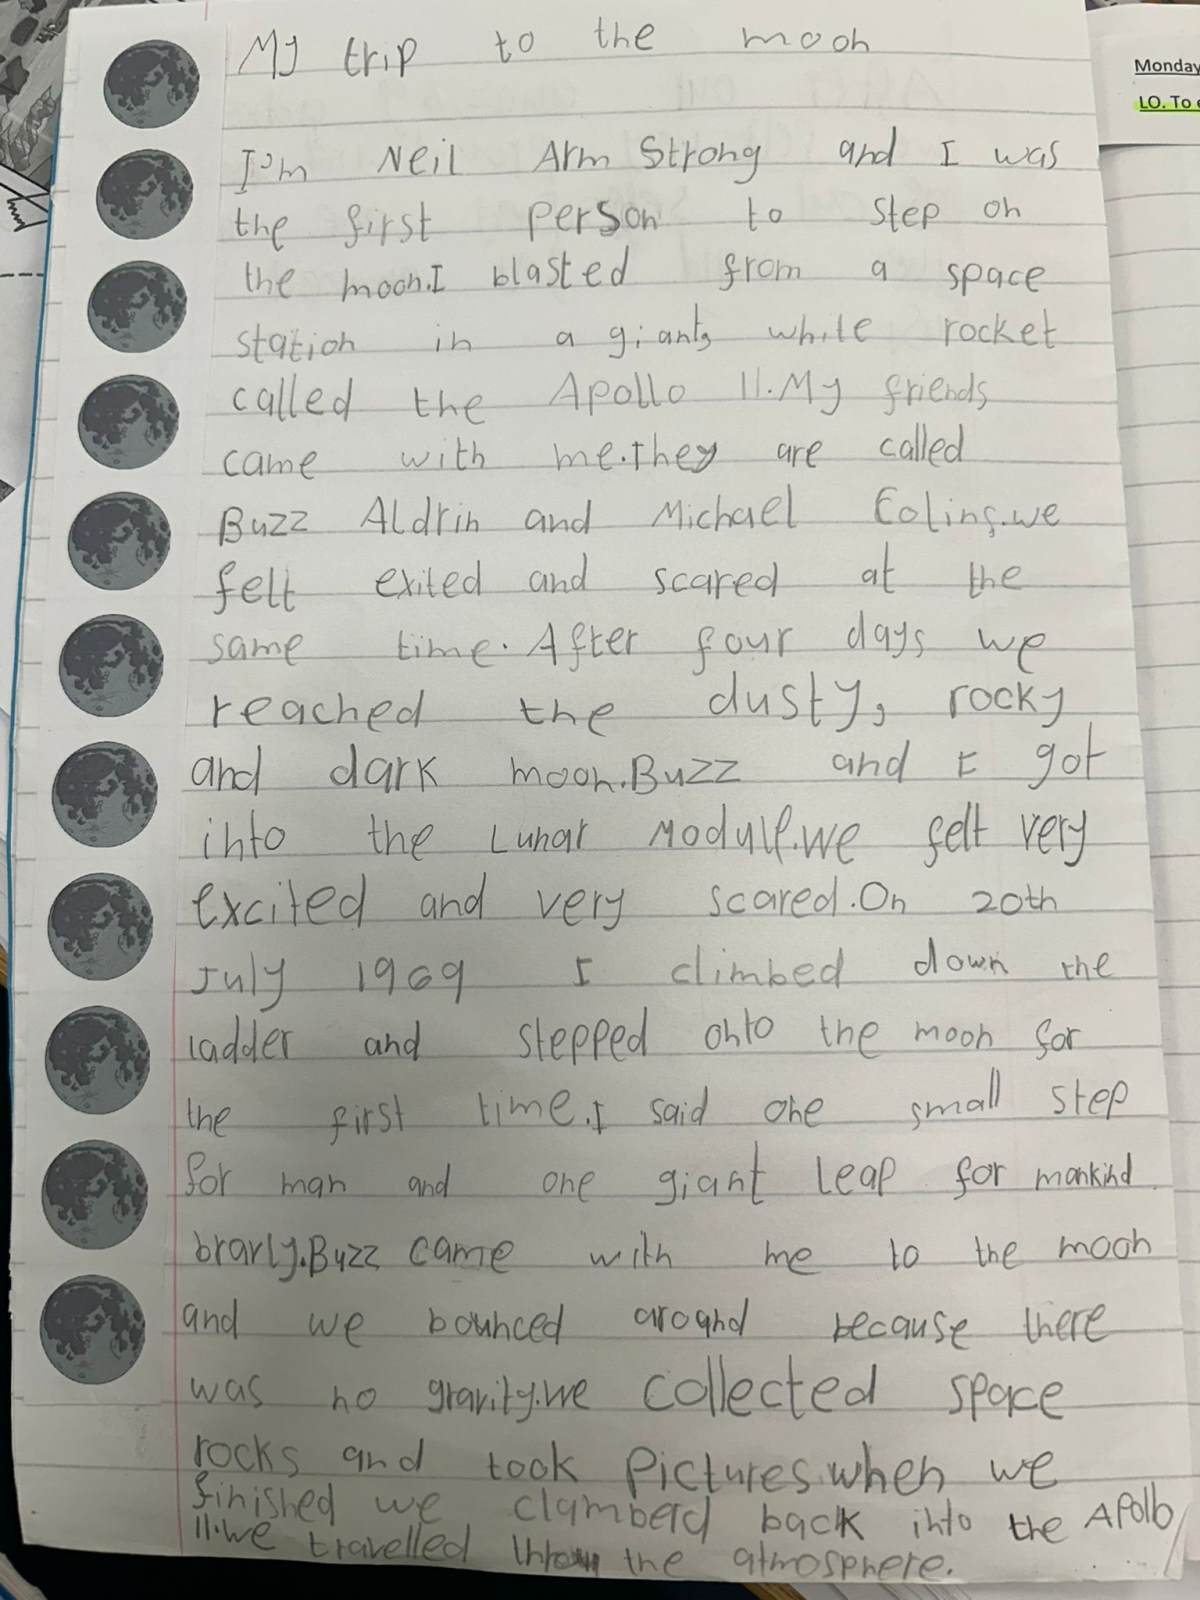 My trip to the moon
Monday
LO. To e
I'm Neil Arm Strong and I was
the first person to step on
the moon.I blasted from a space
station in a giant, white rocket
called the Apollo 11.My friends
came with me.They are called
Buzz Aldrin and Michael Colins.we
felt exited and scared at the
same time. After four days we
reached the dusty, rocky
and dark moon.Buzz and I got
into the Lunar Module.we felt very
excited and very scared.On 20th
July 1969 I climbed down the
ladder and stepped onto the moon for
the first time.I said one small step
for man and one giant leap for mankind
brarly.Buzz came with me to the moon
and we bounced around because there
was no gravity.we collected space
rocks and took pictures.when we
finished we clamberd back into the Apollo
11.we travelled the atmosphere.